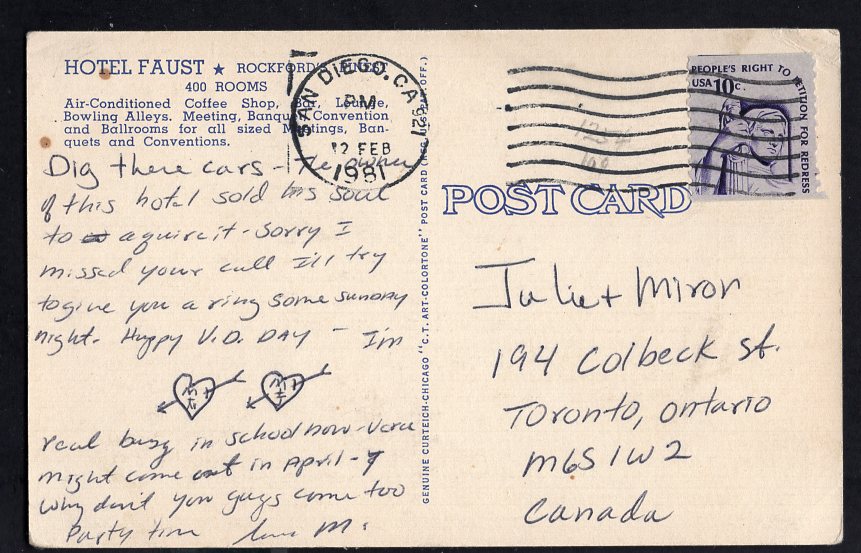 HOTEL FAUST ★ ROCKFORD'S FINEST
400 ROOMS
Air-Conditioned Coffee Shop, Bar, Lounge,
Bowling Alleys. Meeting, Banquet, Convention
and Ballrooms for all sized Meetings, Ban-
quets and Conventions.
Dig these cars - The owner
of this hotel sold his soul
to aquire it - Sorry I
missed your call I'll try
to give you a ring some sunday
night. Happy V.D. DAY - I'm
real busy in school now - Vera
might come out in April -
Why don't you guys come too
Party time love M.
GENUINE CURTEICH-CHICAGO "C.T. ART-COLORTONE" POST CARD (REG. U.S. PAT. OFF.)
SAN DIEGO, CA 921
PM
12 FEB
1981
PEOPLE'S RIGHT TO PETITION FOR REDRESS
USA 10c.
POST CARD
Julie + Miron
194 Colbeck St.
Toronto, Ontario
M6S 1W2
Canada